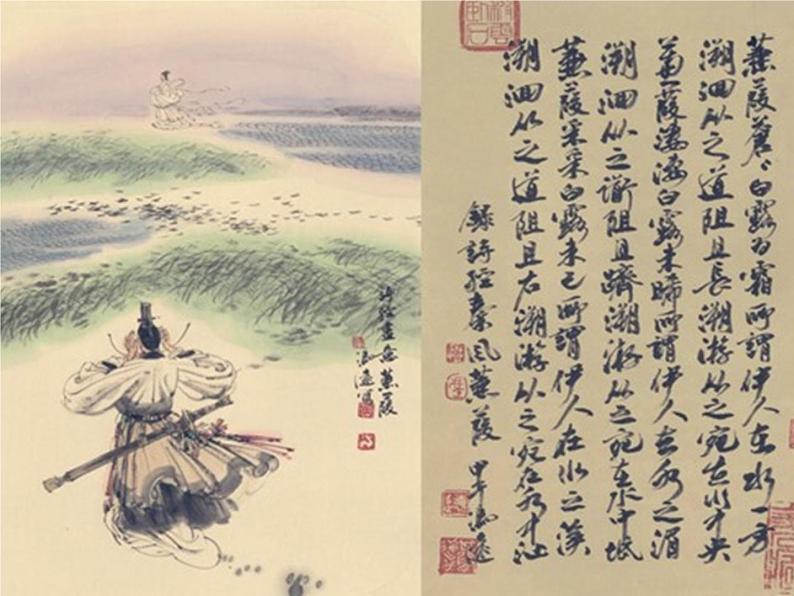 蒹葭蒼々白露为霜所謂伊人在水一方
溯洄从之道阻且長溯游从之宛在水中央
蒹葭凄凄白露未晞所謂伊人在水之湄
溯洄从之道阻且躋溯游从之宛在水中坻
蒹葭采采白露未已所謂伊人在水之涘
溯洄从之道阻且右溯游从之宛在水中沚
錄詩經秦风蒹葭 甲午冯遠
詩經畫意蒹葭
冯遠寫